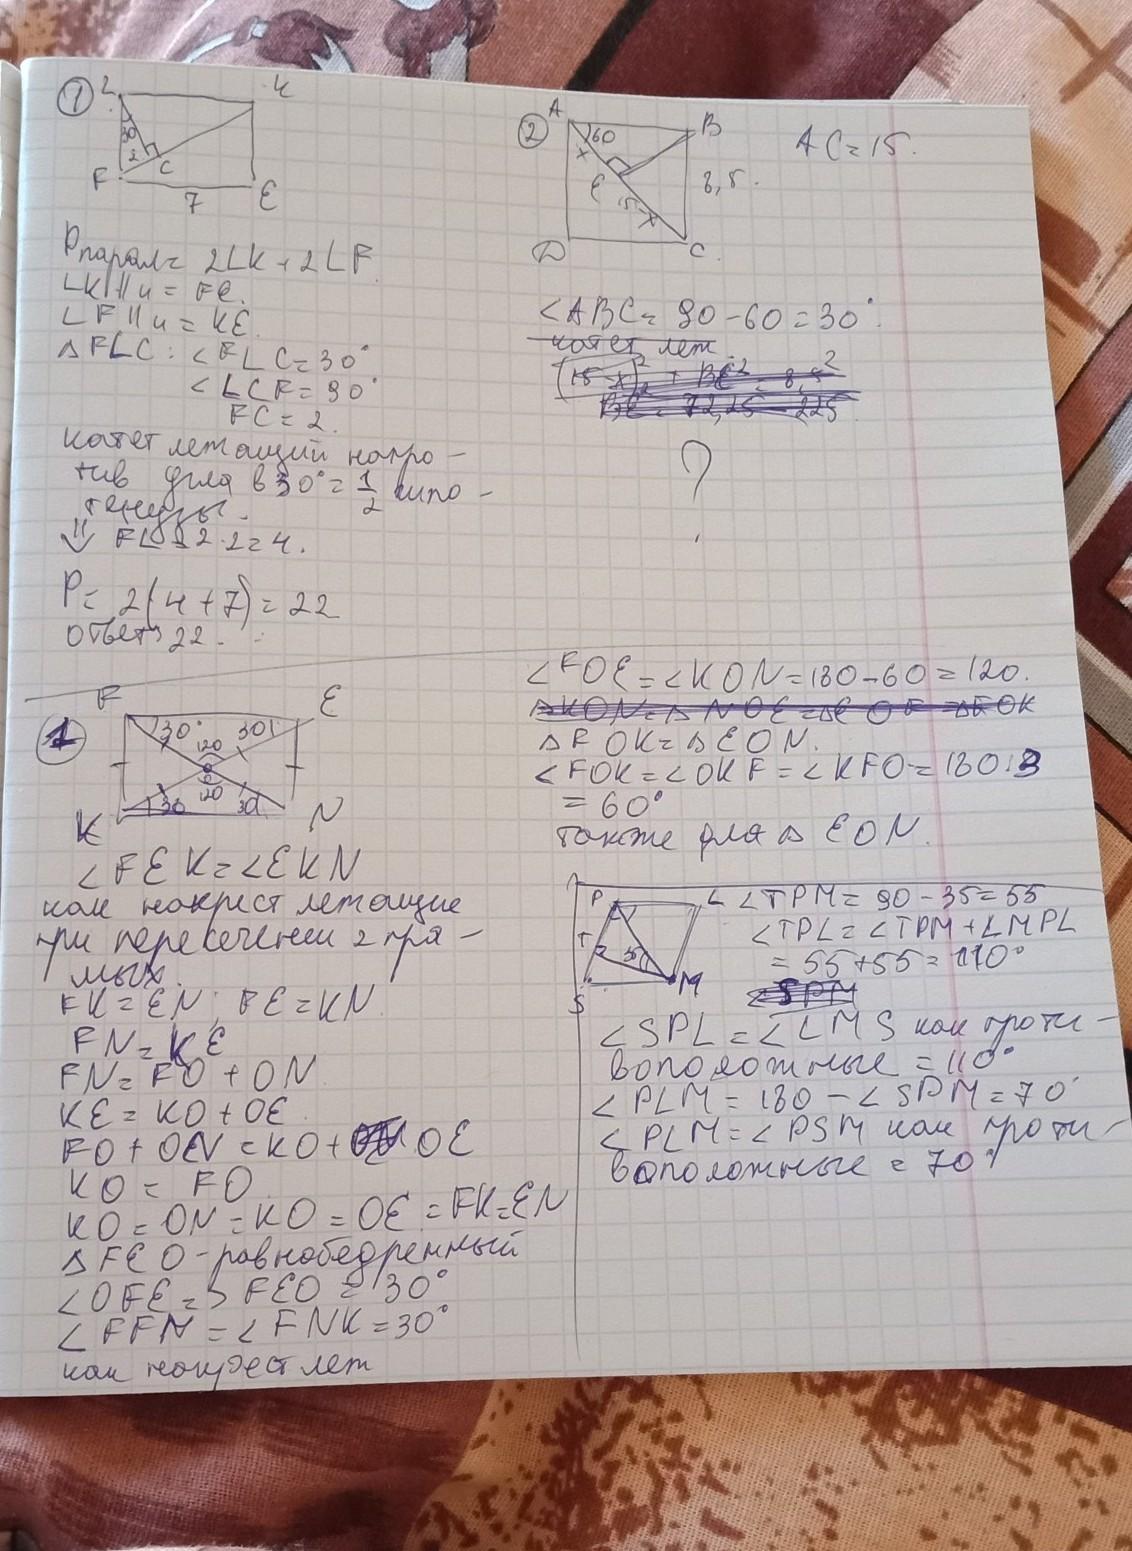 ①
L
K
30
2
C
F
7
E
Pпарал= 2LK + 2LF
LK || и = FE.
LF || и = KE.
△FLC: ∠FLC=30°
∠LCF=90°
FC=2.
катет лежащий напро-
тив угла в 30°=1/2 гипо-
тенузы.
⇓ FL=2·2=4.
P= 2(4+7)=22
ответ: 22.
②
A
60
B
x
E
15-x
8,5.
D
C
AC=15.
∠ABC=90-60=30°.
катет леж
(15-x)² + BE² = 8,5²
BE = 72,25 - 225
?
1
F
E
30°
30
120
120
30
30
K
N
∠FEK=∠EKN
как накрест лежащие
при пересечении 2 пря-
мых.
FK=EN; FE=KN
FN=KE
FN=FO+ON
KE=KO+OE.
FO+ON=KO+OE
KO=FO
KO=ON=KO=OE=FK=EN
△FEO-равнобедренный
∠OFE=>FEO=30°
∠FFN=∠FNK=30°
как накрест леж
∠FOE=∠KON=180-60=120.
△KON=△NOE=△EOF=△FOK
△FOK=△EON.
∠FOK=∠OKF=∠KFO=180:3
=60°
также для △EON.
P
L
T
S
M
∠TPM=90-35=55
∠TPL=∠TPM+∠MPL
=55+55=110°
∠SPM
∠SPL=∠LMS как проти-
воположные =110°
∠PLM=180-∠SPM=70°
∠PLM=∠PSM как проти-
воположные =70°